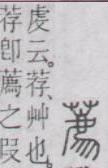 薦
虔云。荐、艸也。
荐卽薦之叚